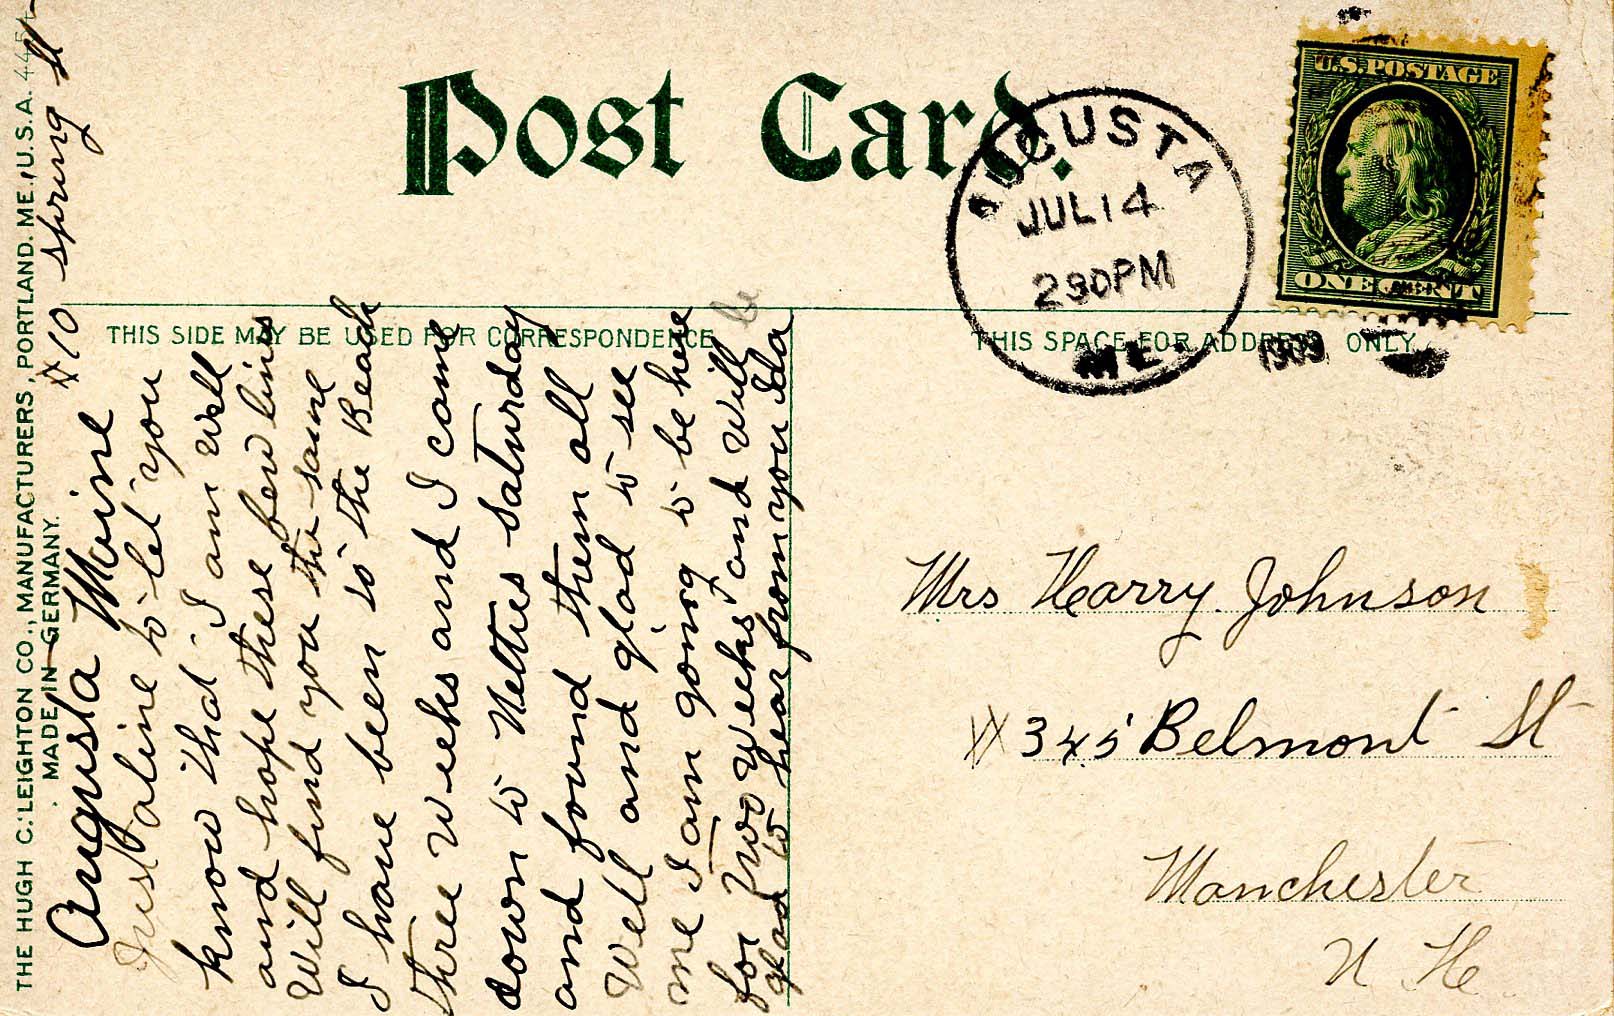 Post Card.
U.S. POSTAGE
ONE CENT
AUGUSTA
JUL 14
230PM
ME.
1909
THIS SIDE MAY BE USED FOR CORRESPONDENCE
THIS SPACE FOR ADDRESS ONLY.
THE HUGH C. LEIGHTON CO., MANUFACTURERS, PORTLAND. ME., U.S.A.
MADE IN GERMANY.
# 10 spring st
Augusta Maine
Just a line to let you
know that I am well
and hope these few lines
will find you the same
I have been to the Beach
three weeks and I came
down to Netties Saturday
and found them all
well and glad to see
me I am going to be here
for two weeks and will be
glad to hear from you Ida
Mrs Harry Johnson
# 345 Belmont St
Manchester
N H